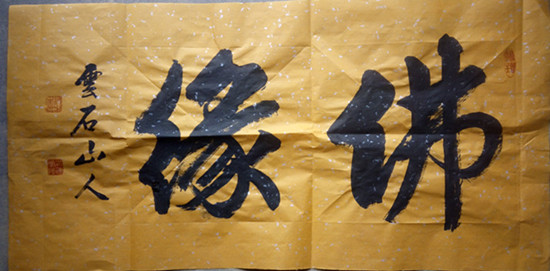 佛緣
雲石山人